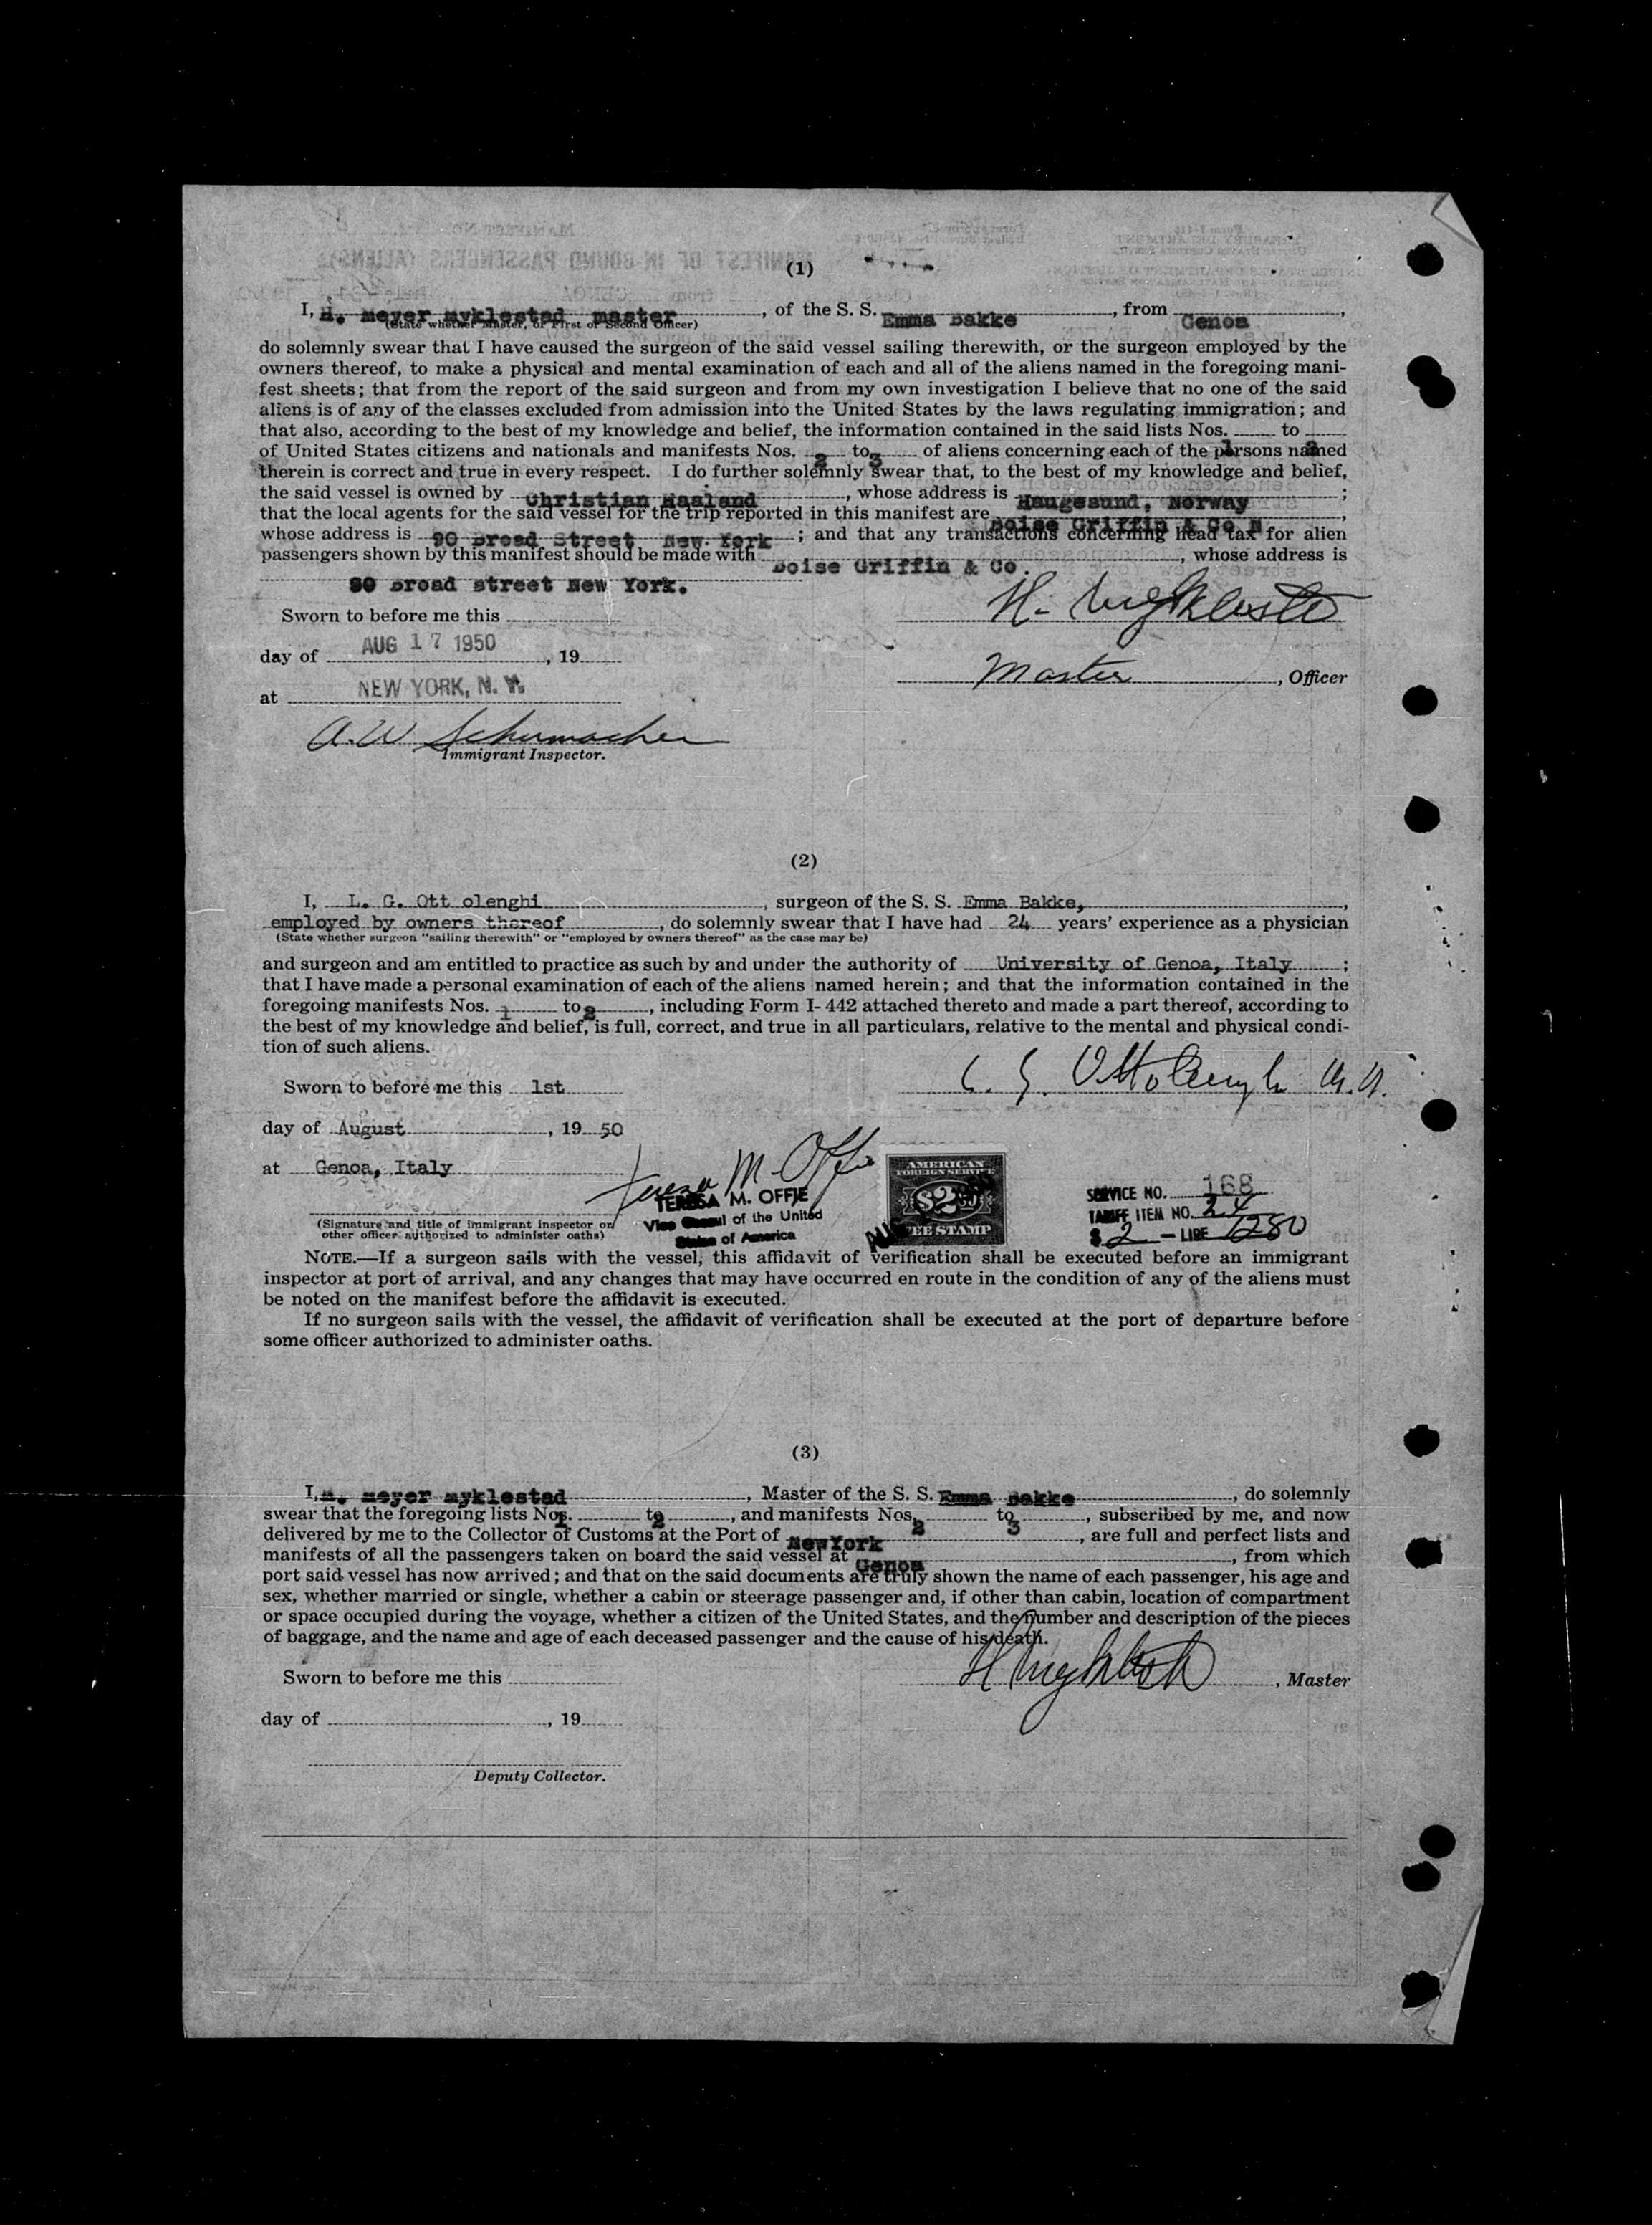 (1)
I, H. Meyer Myklestad master, of the S. S. Emma Bakke, from Genoa,
(State whether Master, or First or Second Officer)
do solemnly swear that I have caused the surgeon of the said vessel sailing therewith, or the surgeon employed by the
owners thereof, to make a physical and mental examination of each and all of the aliens named in the foregoing mani-
fest sheets; that from the report of the said surgeon and from my own investigation I believe that no one of the said
aliens is of any of the classes excluded from admission into the United States by the laws regulating immigration; and
that also, according to the best of my knowledge and belief, the information contained in the said lists Nos. to
of United States citizens and nationals and manifests Nos. 2 to 3 of aliens concerning each of the persons named
therein is correct and true in every respect. I do further solemnly swear that, to the best of my knowledge and belief,
the said vessel is owned by Christian Haaland, whose address is Haugesund, Norway;
that the local agents for the said vessel for the trip reported in this manifest are Boise Griffin & Co N,
whose address is 90 Broad Street New York; and that any transactions concerning head tax for alien
passengers shown by this manifest should be made with Boise Griffin & Co., whose address is
90 Broad street New York.
Sworn to before me this
day of AUG 17 1950, 19
at NEW YORK, N. Y.
H. Myklestad
Master, Officer
A. W Schumacher
Immigrant Inspector.
(2)
I, L. G. Ott olenghi, surgeon of the S. S. Emma Bakke,,
employed by owners thereof, do solemnly swear that I have had 24 years' experience as a physician
(State whether surgeon "sailing therewith" or "employed by owners thereof" as the case may be)
and surgeon and am entitled to practice as such by and under the authority of University of Genoa, Italy;
that I have made a personal examination of each of the aliens named herein; and that the information contained in the
foregoing manifests Nos. 1 to 2, including Form I-442 attached thereto and made a part thereof, according to
the best of my knowledge and belief, is full, correct, and true in all particulars, relative to the mental and physical condi-
tion of such aliens.
Sworn to before me this 1st
L. G. Ottolenghi M.D.
day of August, 19 50
at Genoa, Italy
Teresa M. Offie
TERESA M. OFFIE
Vice Consul of the United
States of America
(Signature and title of immigrant inspector or
other officer authorized to administer oaths)
AMERICAN
FOREIGN SERVICE
$2.00
FEE STAMP
SERVICE NO. 168
TARIFF ITEM NO. 24
$ 2 — LIRE 1280
NOTE.—If a surgeon sails with the vessel, this affidavit of verification shall be executed before an immigrant
inspector at port of arrival, and any changes that may have occurred en route in the condition of any of the aliens must
be noted on the manifest before the affidavit is executed.
If no surgeon sails with the vessel, the affidavit of verification shall be executed at the port of departure before
some officer authorized to administer oaths.
(3)
I, H. Meyer Myklestad, Master of the S. S. Emma Bakke, do solemnly
swear that the foregoing lists Nos. 1 to 2, and manifests Nos. 2 to 3, subscribed by me, and now
delivered by me to the Collector of Customs at the Port of NewYork, are full and perfect lists and
manifests of all the passengers taken on board the said vessel at Genoa, from which
port said vessel has now arrived; and that on the said documents are truly shown the name of each passenger, his age and
sex, whether married or single, whether a cabin or steerage passenger and, if other than cabin, location of compartment
or space occupied during the voyage, whether a citizen of the United States, and the number and description of the pieces
of baggage, and the name and age of each deceased passenger and the cause of his death.
Sworn to before me this
H Myklestad, Master
day of , 19
Deputy Collector.